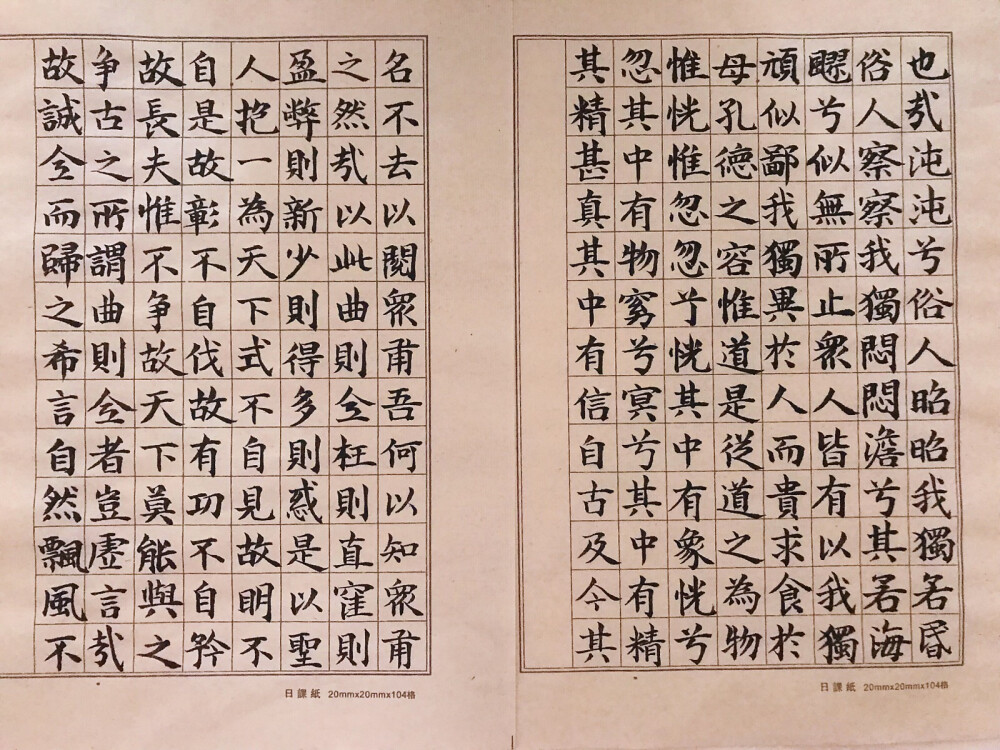 也哉沌沌兮俗人昭昭我獨若昏
俗人察察我獨悶悶澹兮其若海
兮似無所止衆人皆有以我獨
頑似鄙我獨異於人而貴求食於
母孔德之容惟道是從道之為物
惟恍惟忽忽兮恍其中有象恍兮
忽其中有物窈兮冥兮其中有精
其精甚真其中有信自古及今其
日課紙 20mmx20mmx104格
名不去以閱衆甫吾何以知衆甫
之然哉以此曲則全枉則直窪則
盈弊則新少則得多則惑是以聖
人抱一為天下式不自見故明不
自是故彰不自伐故有功不自矜
故長夫惟不争故天下莫能與之
争古之所謂曲則全者豈虛言哉
故誠全而歸之希言自然飄風不
日課紙 20mmx20mmx104格